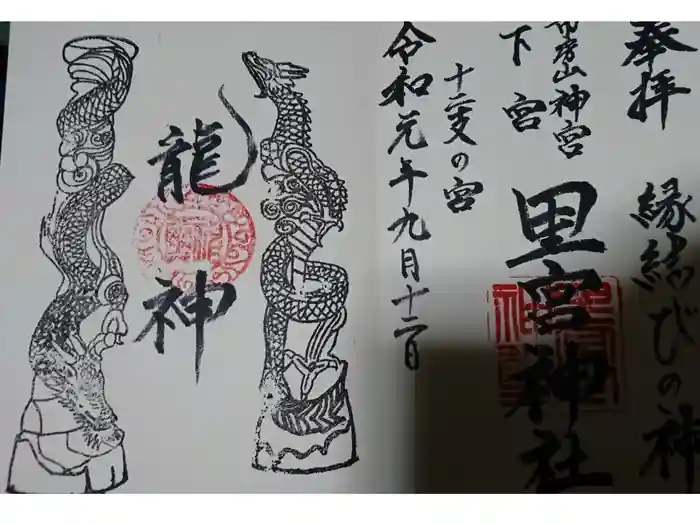 奉拝
縁結びの神
山神宮
下宮
里宮神社
十二支の宮
令和元年九月十二日
龍神